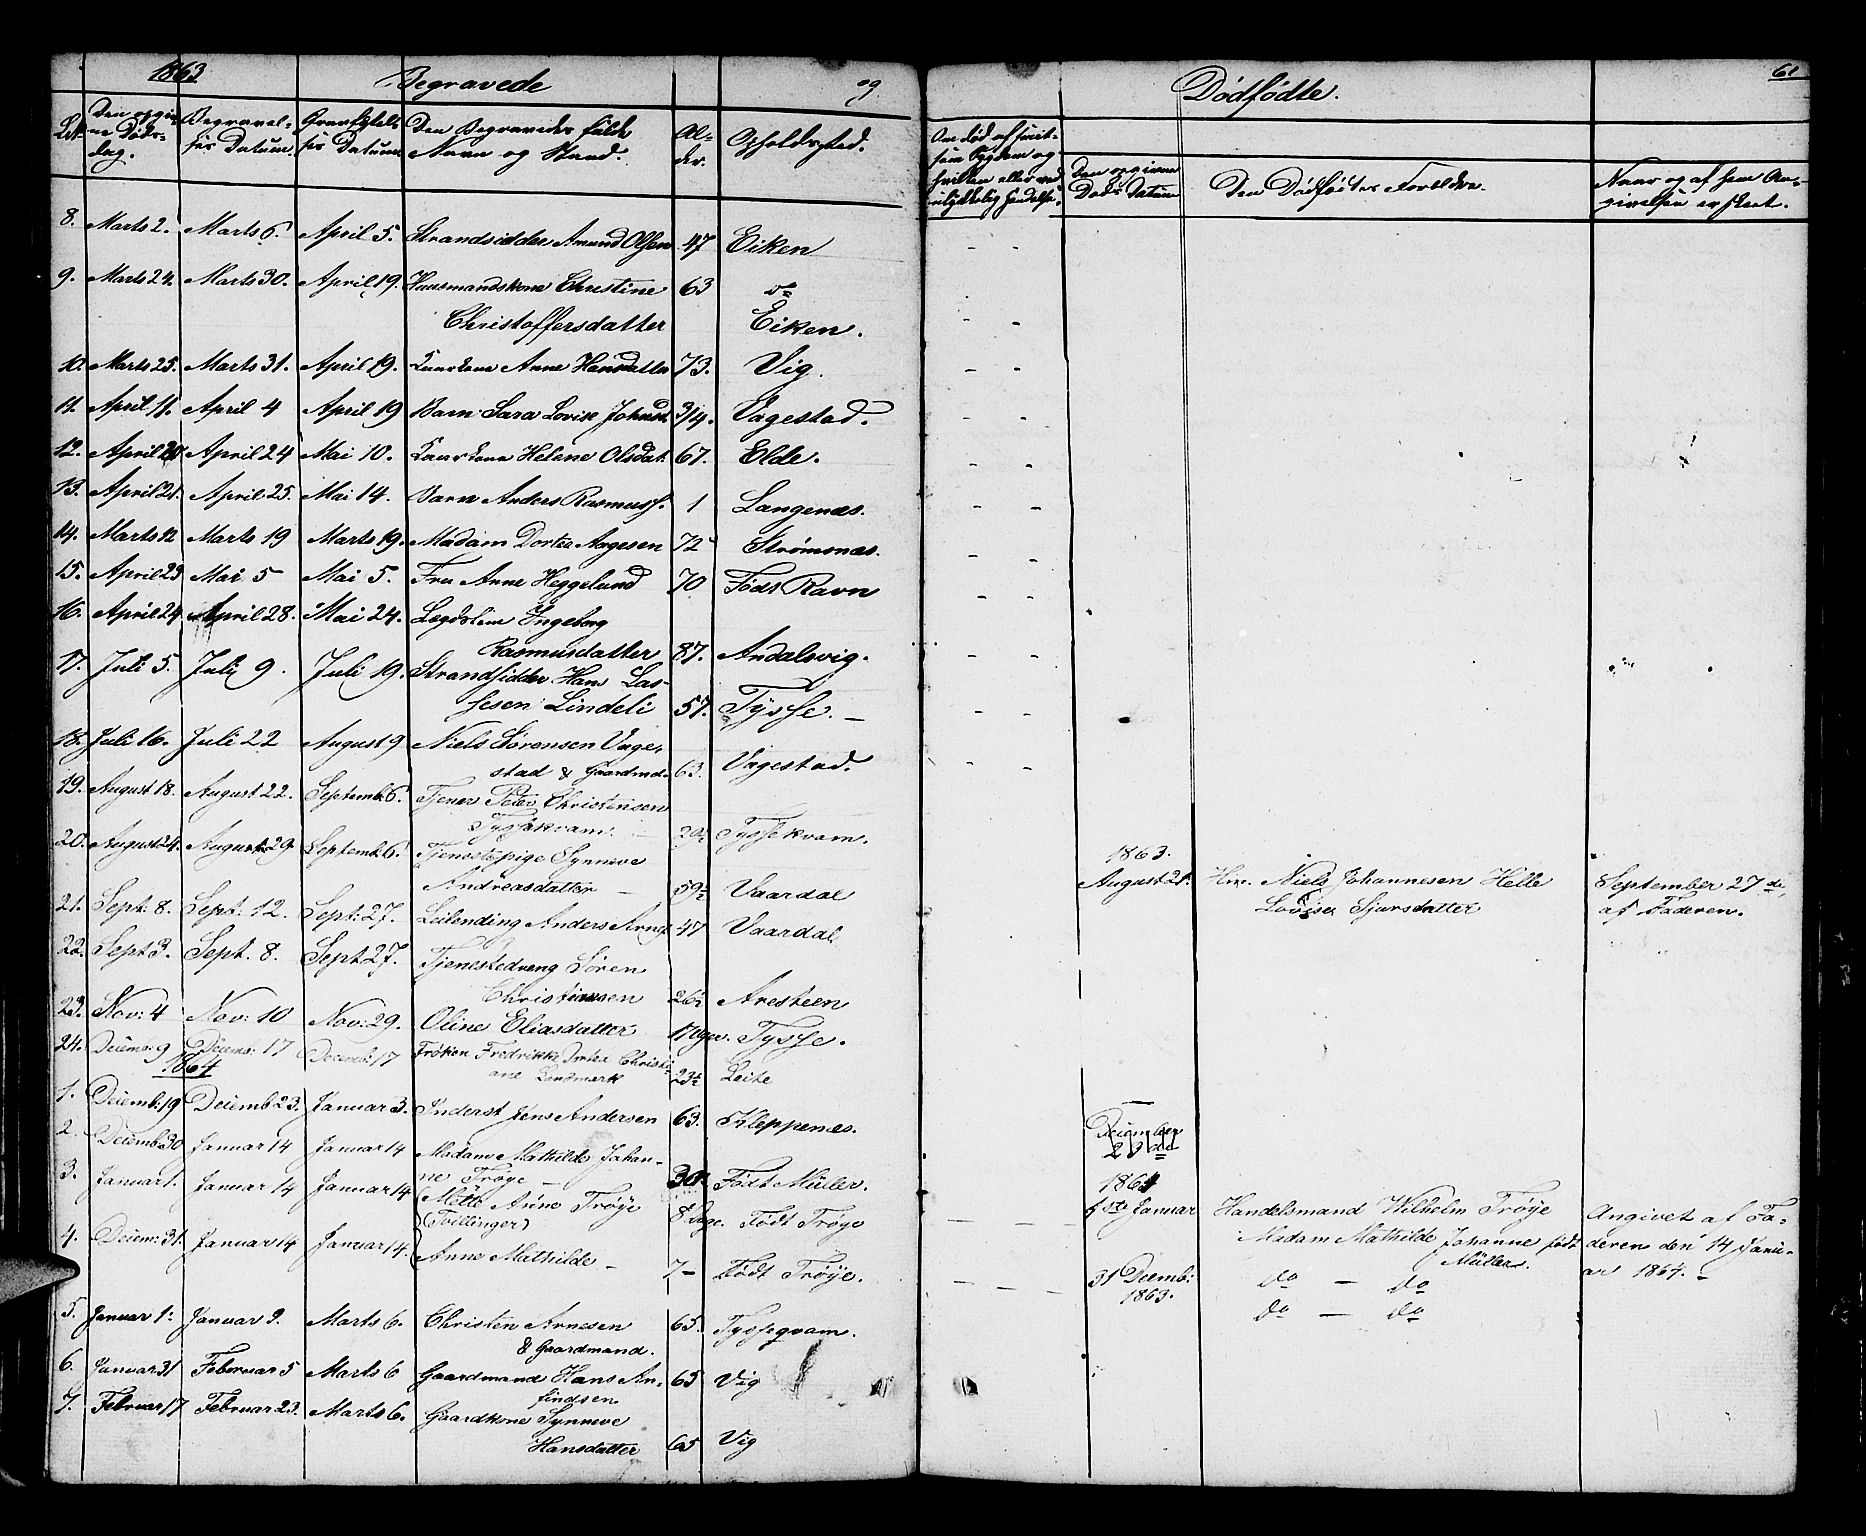 1863 Begravede og
Den opgiv-
Lit. ne Døds-
dag. Begravel-
ses Datum. Den Begravedes fulde
Navn og Stand. Al-
der. Opholdssted.
8. Marts 2. Marts 6. April 5. Strandsidder Amund Olsen 47 Eiken
9. Marts 24. Marts 30. April 19. Huusmandskone Christine 63 do
Christoffersdatter Eiken.
10. Marts 25. Marts 31. April 19. Anne Hansdatter 73. Vig.
11. April 11. April 4 April 19 Barn Sara Lovise Johansd. 3/4. Vagestad.
12. April 20 April 24 Mai 10. Helene Olsdat. 67. Elde.
13. April 21. April 25. Mai 14. Barn Anders Rasmuss. 1 Langenæs.
14. Marts 12 Marts 19 Marts 19. Madam Dortea Aagesen 72 Strømsnæs.
15. April 23 Mai 5 Mai 5. Fru Anne Heggelund 70 Født Ravn
16. April 24. April 28. Mai 24. Lægdslem Ingeborg
Rasmusdatter 87. Andalsvig.
17. Juli 5. Juli 9. Juli 19. Strandsidder Hans Las-
sesen Lindeli 57. Tysse. —
18. Juli 16. Juli 22 August 9 Niels Sørensen Vage-
stad & Gaardmd. 63. Vagestad.
19. August 18. August 22. Septemb. 6. Tjener Peter Christensen
Tyssekvam. 20½ Tyssekvam.
20. August 24. August 29 Septemb. 6. Tjenestepige Synneve
Andreasdatter — 59½ Vaardal
21. Sept: 8. Sept: 12. Sept: 27. Leilending Anders Arnes. 47 Vaardal
22. Sept 3. Sept. 8. Sept 27. Tjenestedreng Søren
Christensen 26½ Aresteen
23. Nov: 4 Nov: 10 Nov: 29. Oline Eliasdatter 11 Uger. Tysse.
24. Decemb: 9 Decemb: 17 Decemb: 17 Frøken Fredrikke Dortea Christi-
ane Landmark 23½ Leite
1864
1. Decemb: 19 Decemb 23. Januar 3. Inderst Jens Andersen 63. Kleppenæs.
2. Decemb 30 Januar 14 Januar 14 Madam Mathilde Johan-
ne Trøye — 30. Født Müller.
3. Januar 1. Januar 14 Januar 14 Mette Anne Trøye 8 Dage. Født Trøye
(Tvillinger)
4. Decem: 31. Januar 14 Januar 14. Anne Mathilde — 7 — Født Trøye.
5. Januar 1: Januar 9. Marts 6. Christen Arnesen 65. Tysseqvam.
& Gaardmand.
6. Januar 31 Februar 5 Marts 6 Gaardmand Hans An-
findsen 65 Vig
7. Februar 17 Februar 23. Marts 6. Gaardkone Synneve
Hansdatter 65 Vig
Dødfødte. 61
Om død af smit-
som Sygdom og
hvilken eller ved
ulykkelig Hendelse. Den opgivne
Døds Datum Den Dødfødtes Forældre. Naar og af hvem An-
givelsen er skeet.
1863.
August 21. Hmd. Niels Johannesen Helle
Lovise Sjursdatter September 27de
af Faderen.
December
23de
1864
1ste Januar Handelsmand Wilhelm Trøye
Madam Mathilde Johanne født
Müller. Angivet af Fa-
deren den 14 Janu-
ar 1864. —
31 Decemb:
1863. do — do
do — do